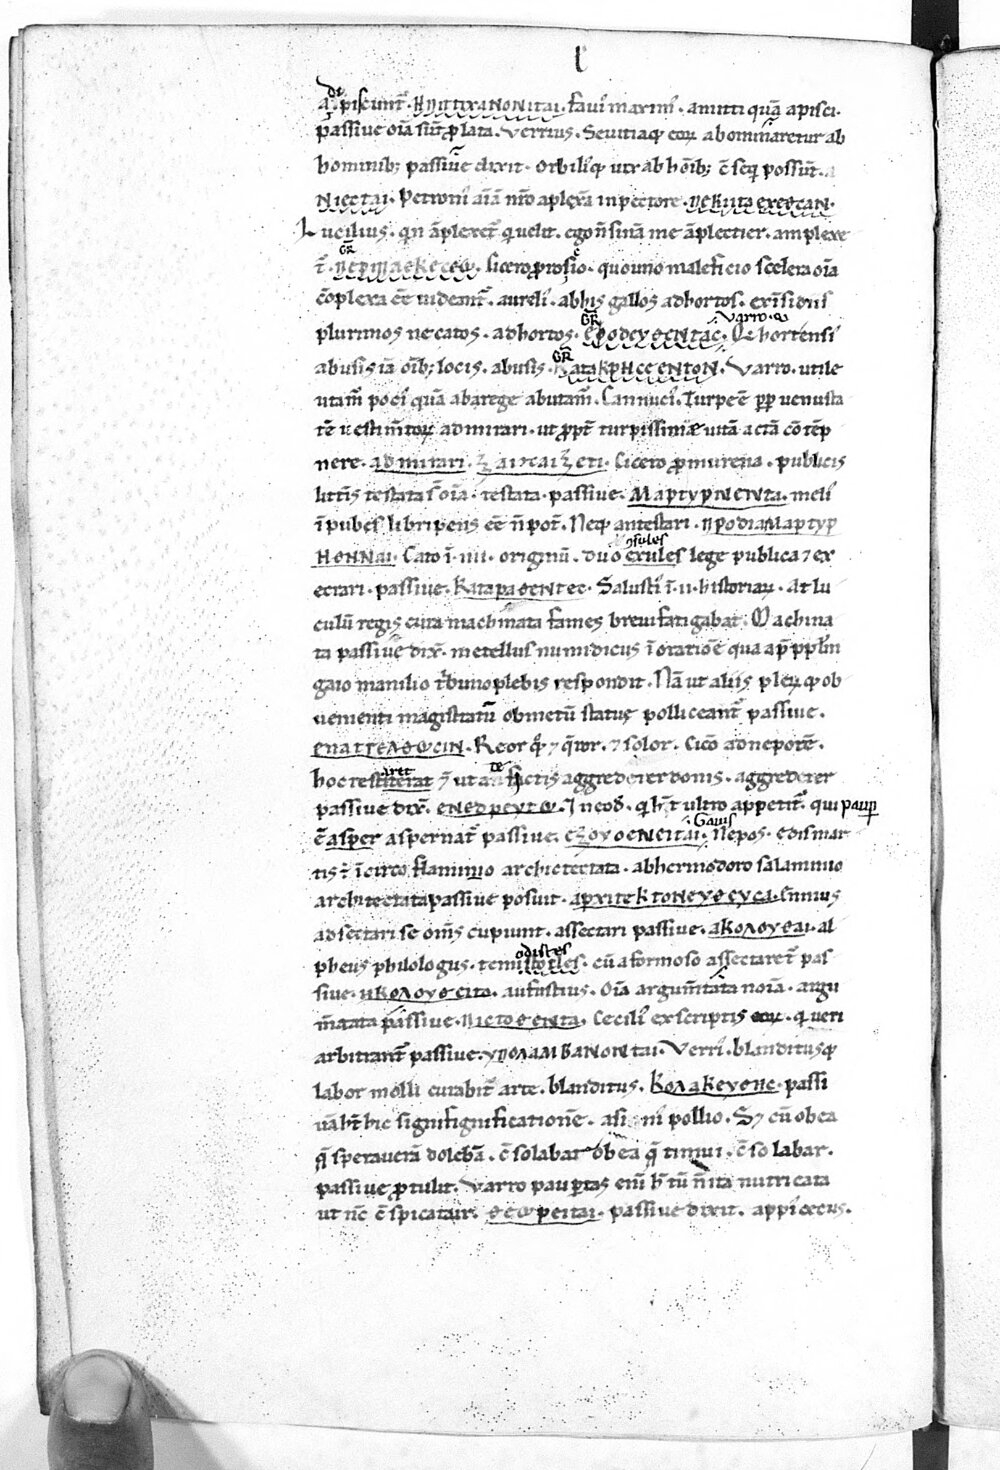 l
di
a piscunt̃ · ΗΠΙΤΙΧΑΝΟΝΙΤΑΙ · favi maximi · amitti quā apisci ·
passive oīa sūt plata · Verrius · Sevitiaq eoꝝ abominaretur ab
hominib; passive dixit · orbiliꝰ q utr ab hōib; c̄ seq possūt ·
ΝΙΕCΤΑΙ · Petroni aīā nr̄o aplexā in pectore · ΠΕΚΙΙΤΑ ΕΧΕΘCΑΝ ·
Lucilius · qn āplexet̃ qvelit · ego n̄ sinā me āplectier · amplexe
GR
t̃ · ΠΕΡΙΠΛΕΚΕCΕΩ · Cicero pro sio · quo uno maleficio scelera oīa
cōplexa ēē videant̃ · aureli · ab his gallos ad hortos · exīsidiis
GR Varro · &
plurimos necatos · adhortos · ΕΡΟΔΕΥΘΕΝΤΑC · Q hortensi
GR
abusis iā oīb; locis · abusis · ΚΑΤΑΚΡΗCΘΕΝΤΟΝ · Varro · utile
utam̃ poci quā abarege abutam̃ · Cannuci · Turpe ē ꝓp venusta
tē vestim̃toꝝ admirari · ut ꝓpt̃ turpissimæ vitā actā cōtēp
nere · admirari · Cicero ꝓ murena · publicis
litt̃is testata s̄ oīa · testata · passive · ΜΑΡΤΥΡΝΕΝΤΑ · meli
īpubes libripens ēē n̄ pot̃ · Neq antestari · ΠΡΟΔΙΑΜΑΡΤΥΡ
ɔsules
ΗΘΗΝΑΙ · Cato ī · iiii · originū · duo exules lege publica ⁊ ex
ecrari · passive · ΚΑΤΑΡΑΘΕΝΤΕC · Salusti ī · ii · historiaꝝ · At lu
culū regis cura machinata fames brevi fatigabat · Machina
ta passive dix̃ · metellus numidicus ī oratiōe qua ap̄ pplm̄
gaio manilio t̃buno plebis respondit · Nā ut aliis pleꝝq ob
vementi magistratū obmetū status polliceant̃ passive ·
ΕΠΑΓΓΕΛΘΩCΙΝ · Reor q̃ ⁊ q̄ıor · ⁊ solor · Cicō ad nepotē ·
aret te
hoc restiterat ⁊ ut a factis aggrederer donis · aggrederer
passive dix̃ · ΕΝΕΔΡΕΥΤΩ · I neod · q h̃t ultro appetit̃ · qui paup
Gavis
ē asper aspernat̃ passive · ΕΞΟΥΘΕΝΕΙΤΑΙ · Nepos · edis mar
tis ē ī circo flaminio architectata · ab hermodoro salaminio
architectata passive posuit · ΑΡΧΙΤΕΚΤΟΝΕΥΘΕΥCΑ · Ennius
adsectari se om̄s cupiunt · assectari passive · ΑΚΟΛΟΥΘΑΙ · al
odistes
pheus philologus · temistocles · cū a formoso assectaret̃ pas
sive · ΗΚΟΛΟΥΘΕΙΤΟ · aufustius · Oīa argum̃tata noīa · argu
m̃tata passive · ΠΙCΤΟΘΕΝΤΑ · Cecili ex scriptis eoꝝ · qveri
arbitrant̃ passive · ΥΠΟΛΑΜΒΑΝΟΝΤΑΙ · Verri · blanditusq
labor molli curabit̃ arte · blanditus · ΚΟΛΑΚΕΥΘΕΙC · passi
vā h̃t hic significatiōnē · asini pollio · S⁊ cū ob ea
q̄ speraverā dolebā · c̄ solabar ob ea q̄ timui · c̄ solabar ·
passive ꝓtulit · Varro paup̃tas eni h̃ tū n̄ ita nutricata
ut nc̄ ē spicatur · ΘΕΩΡΕΙΤΑΙ · passive dixit · appi cecus ·